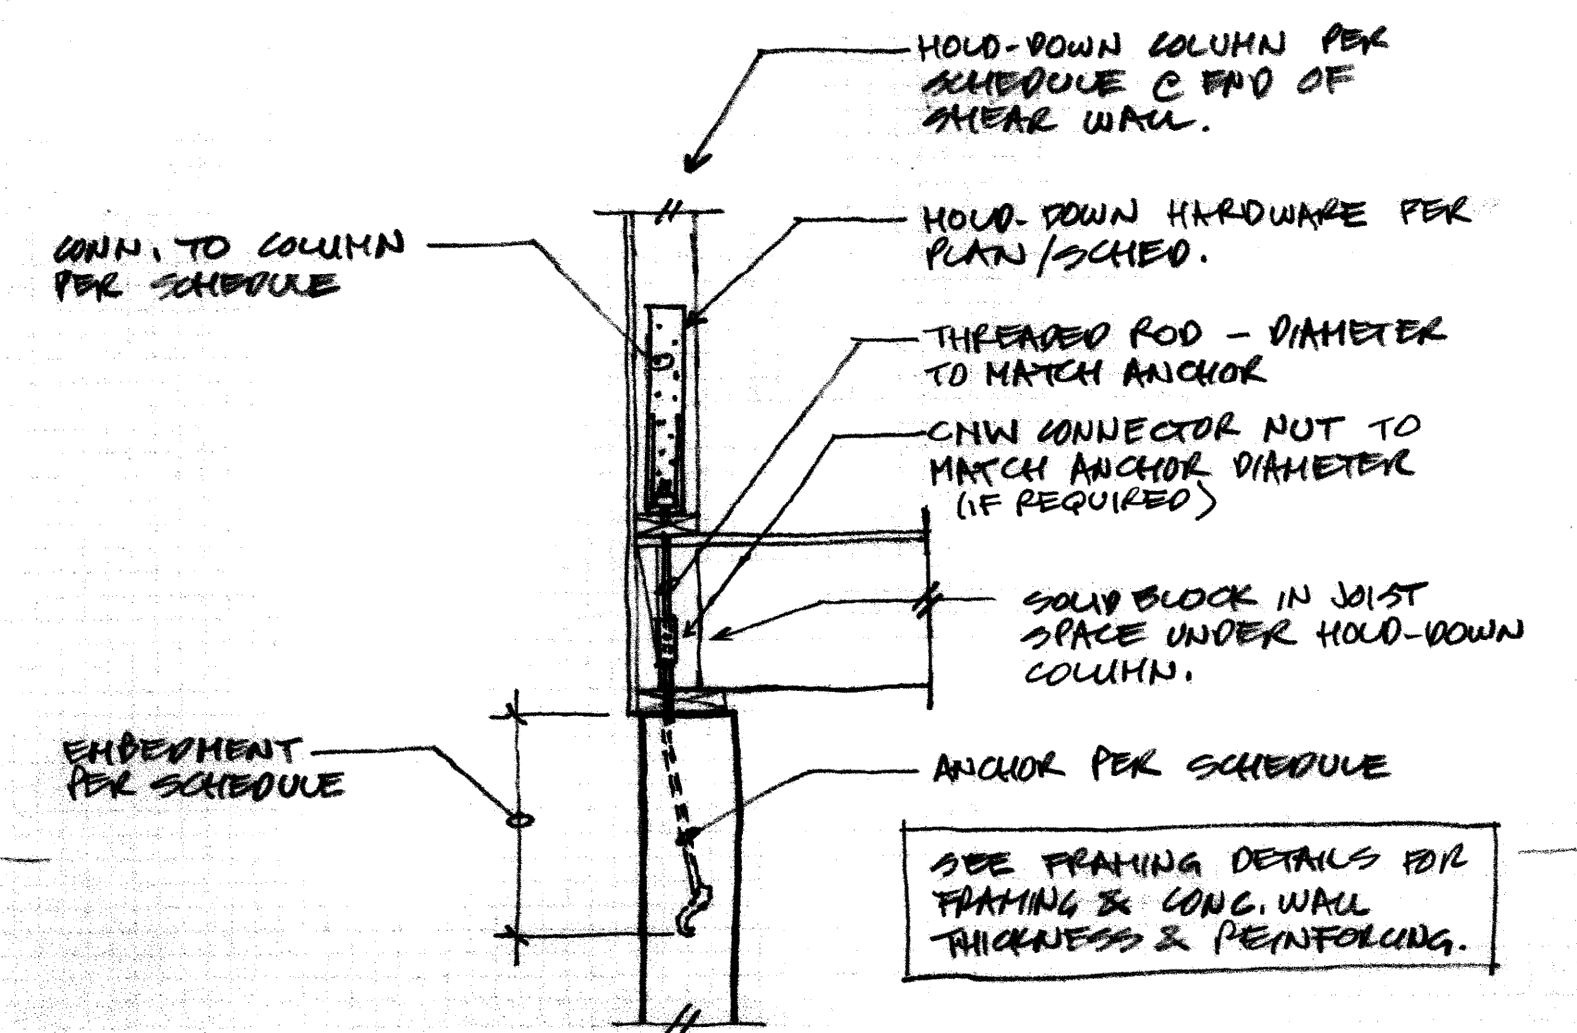 HOLD-DOWN COLUMN PER
SCHEDULE @ END OF
SHEAR WALL.
CONN. TO COLUMN
PER SCHEDULE
HOLD-DOWN HARDWARE PER
PLAN/SCHED.
THREADED ROD - DIAMETER
TO MATCH ANCHOR
CNW CONNECTOR NUT TO
MATCH ANCHOR DIAMETER
(IF REQUIRED)
SOLID BLOCK IN JOIST
SPACE UNDER HOLD-DOWN
COLUMN.
EMBEDMENT
PER SCHEDULE
ANCHOR PER SCHEDULE
SEE FRAMING DETAILS FOR
FRAMING & CONC. WALL
THICKNESS & REINFORCING.